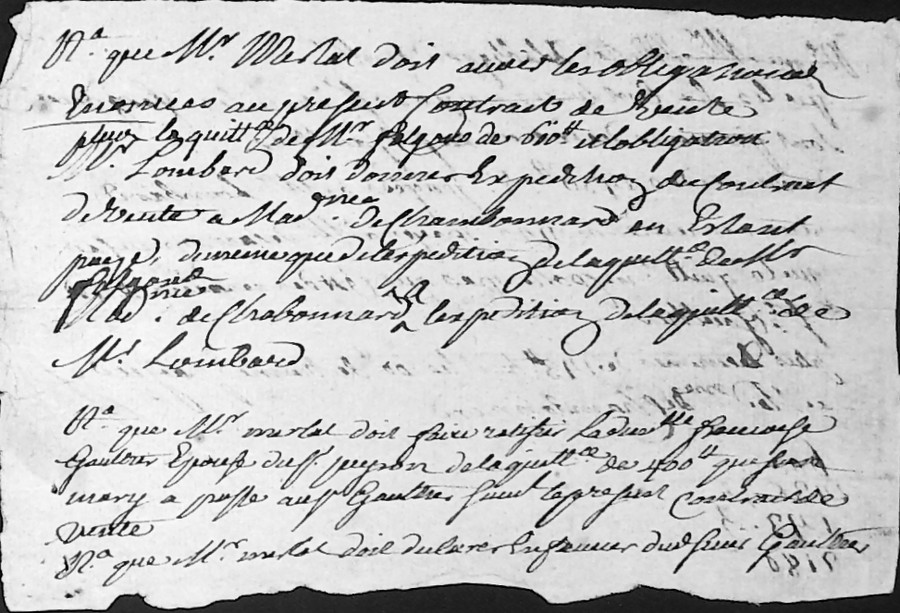 Na. que Mr. Merlat doit avoir les obligations
Enoncees au present Contrat de Vente
plus la quittce de Mr. falgone de 610tt et lobligation
Mr. Lombard doit donner Expedition du Contrat
de Vente a Madme de Chambonnard en Estant
payé, de meme que de lexpedition de la quittce de Mr
falgone
Madme. de Chabonnard a lexpedition de la quittce de
Mr Lombard
Na. que Mr. merlat doit faire ratifier Ladte. dlle francoise
Gaultier Epouse du Sr. peyron de la quittce de 400tt que son
mary a passé au Sr Gaultier suivt le present Contrat de
Vente
Na. que Mr. merlat doit declarer En faveur dud Sieur Gaultier